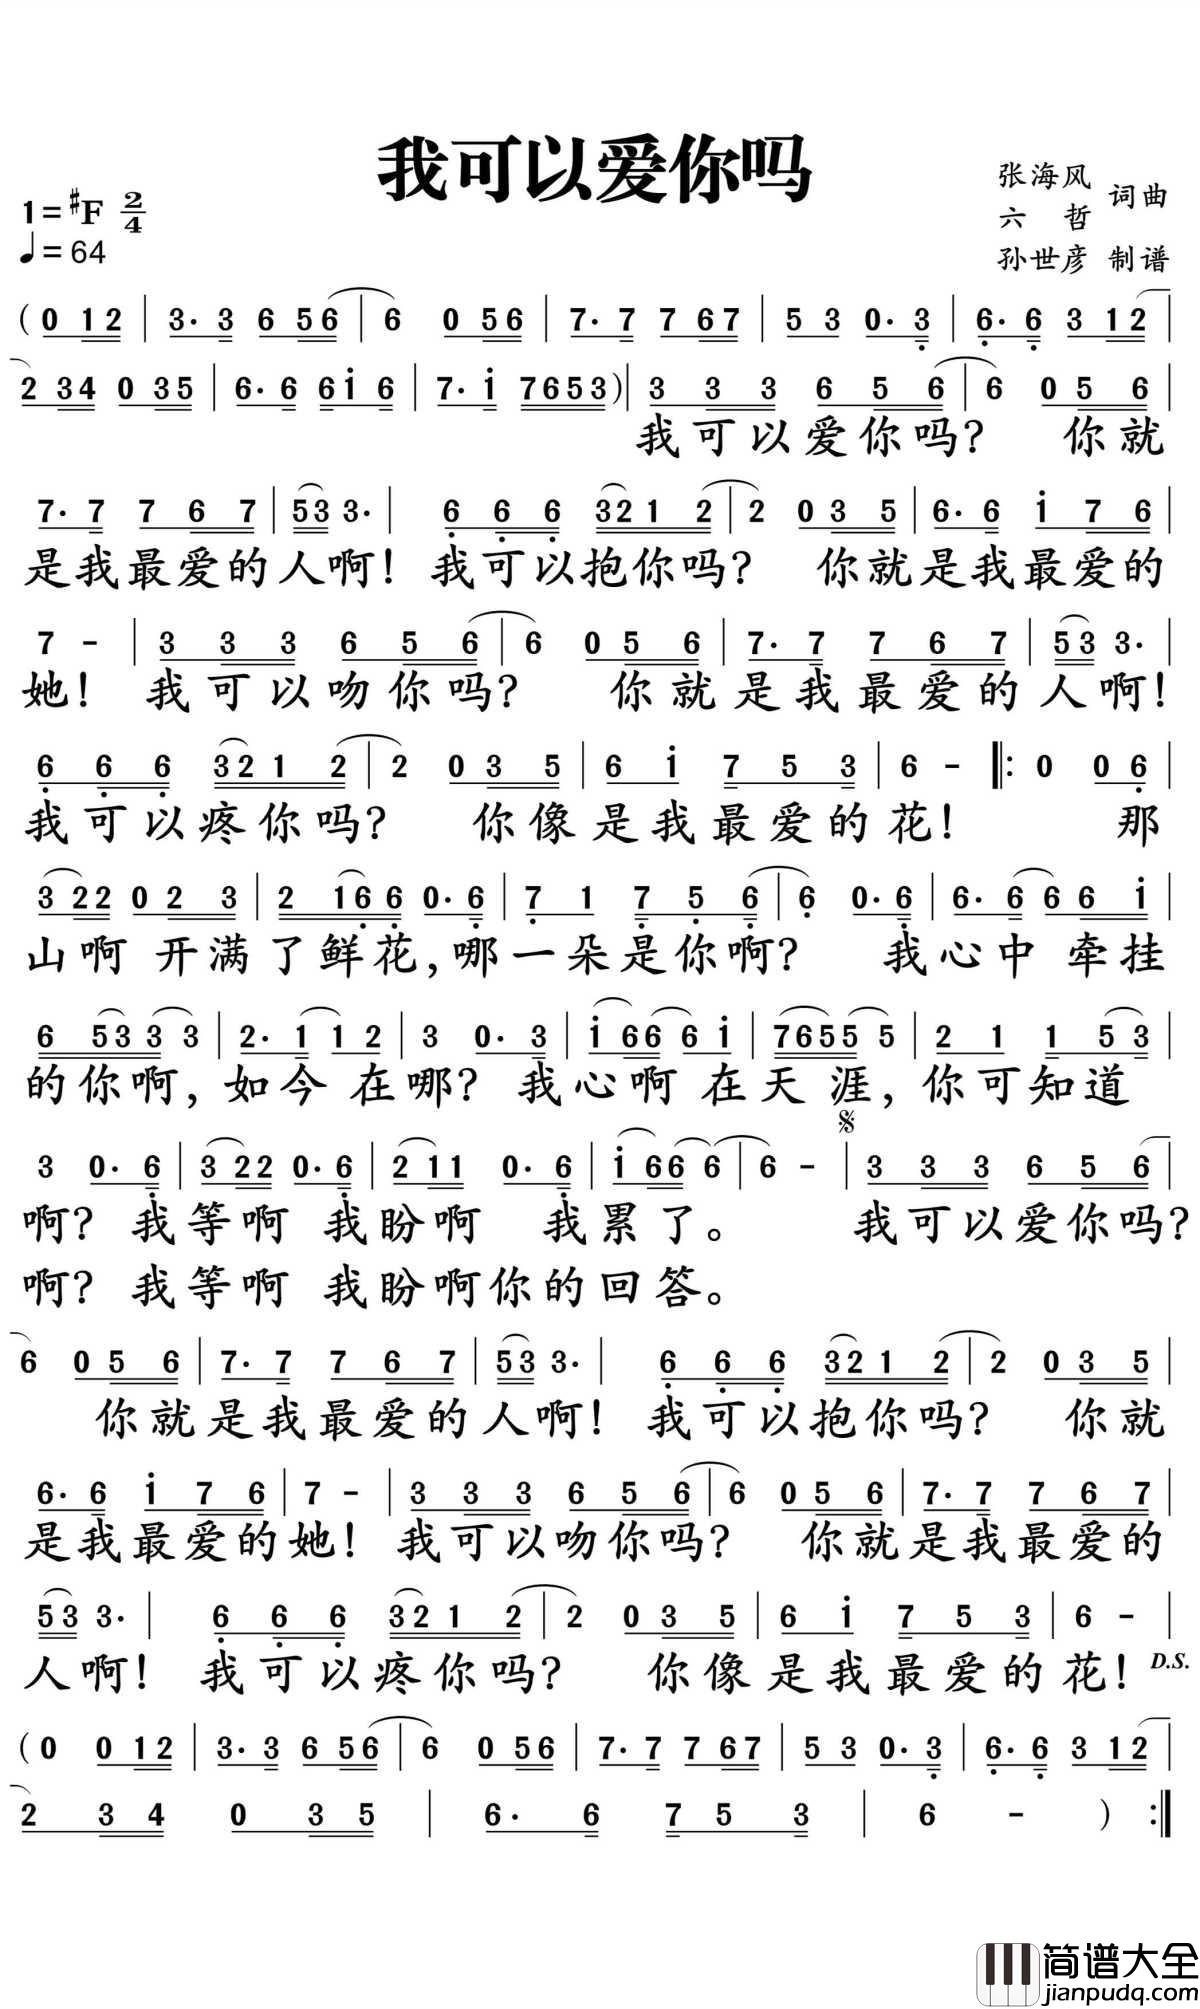 我可以爱你吗
张海风
六 哲 词曲
孙世彦 制谱
1=#F 2/4
♩=64
( 0 12 | 3· 3 6 56 | 6 0 56 | 7· 7 7 67 | 5 3 0· 3 | 6· 6 3 12 |
2 34 0 35 | 6· 6 6i 6 | 7· i 7653 ) | 3 3 3 6 5 6 | 6 0 5 6 |
我可以爱你吗? 你就
7· 7 7 6 7 | 53 3· | 6 6 6 321 2 | 2 0 3 5 | 6· 6 i 7 6 |
是我最爱的人啊! 我可以抱你吗? 你就是我最爱的
7 - | 3 3 3 6 5 6 | 6 0 5 6 | 7· 7 7 6 7 | 53 3· |
她! 我可以吻你吗? 你就是我最爱的人啊!
6 6 6 321 2 | 2 0 3 5 | 6 i 7 5 3 | 6 - ‖: 0 0 6 |
我可以疼你吗? 你像是我最爱的花! 那
3 22 0 2 3 | 2 16 6 0· 6 | 7 1 7 5 6 | 6 0· 6 | 6· 6 6 6 i |
山啊 开满了鲜花,哪一朵是你啊? 我心中 牵挂
6 53 3 3 | 2· 1 1 2 | 3 0· 3 | i 66 6 i | 7655 5 | 2 1 1 5 3 |
的你啊,如今 在哪? 我心啊 在天涯,你可知道
𝄋
3 0· 6 | 3 22 0· 6 | 2 11 0· 6 | i 66 6 | 6 - | 3 3 3 6 5 6 |
啊? 我等啊 我盼啊 我累了。 我可以爱你吗?
啊? 我等啊 我盼啊你的回答。
6 0 5 6 | 7· 7 7 6 7 | 53 3· | 6 6 6 321 2 | 2 0 3 5 |
你就是我最爱的人啊! 我可以抱你吗? 你就
6· 6 i 7 6 | 7 - | 3 3 3 6 5 6 | 6 0 5 6 | 7· 7 7 6 7 |
是我最爱的她! 我可以吻你吗? 你就是我最爱的
53 3· | 6 6 6 321 2 | 2 0 3 5 | 6 i 7 5 3 | 6 - |
人啊! 我可以疼你吗? 你像是我最爱的花! D.S.
( 0 0 12 | 3· 3 6 56 | 6 0 56 | 7· 7 7 67 | 5 3 0· 3 | 6· 6 3 12 |
2 3 4 0 3 5 | 6· 6 7 5 3 | 6 - ) :‖
简谱大全
jianpudq.com